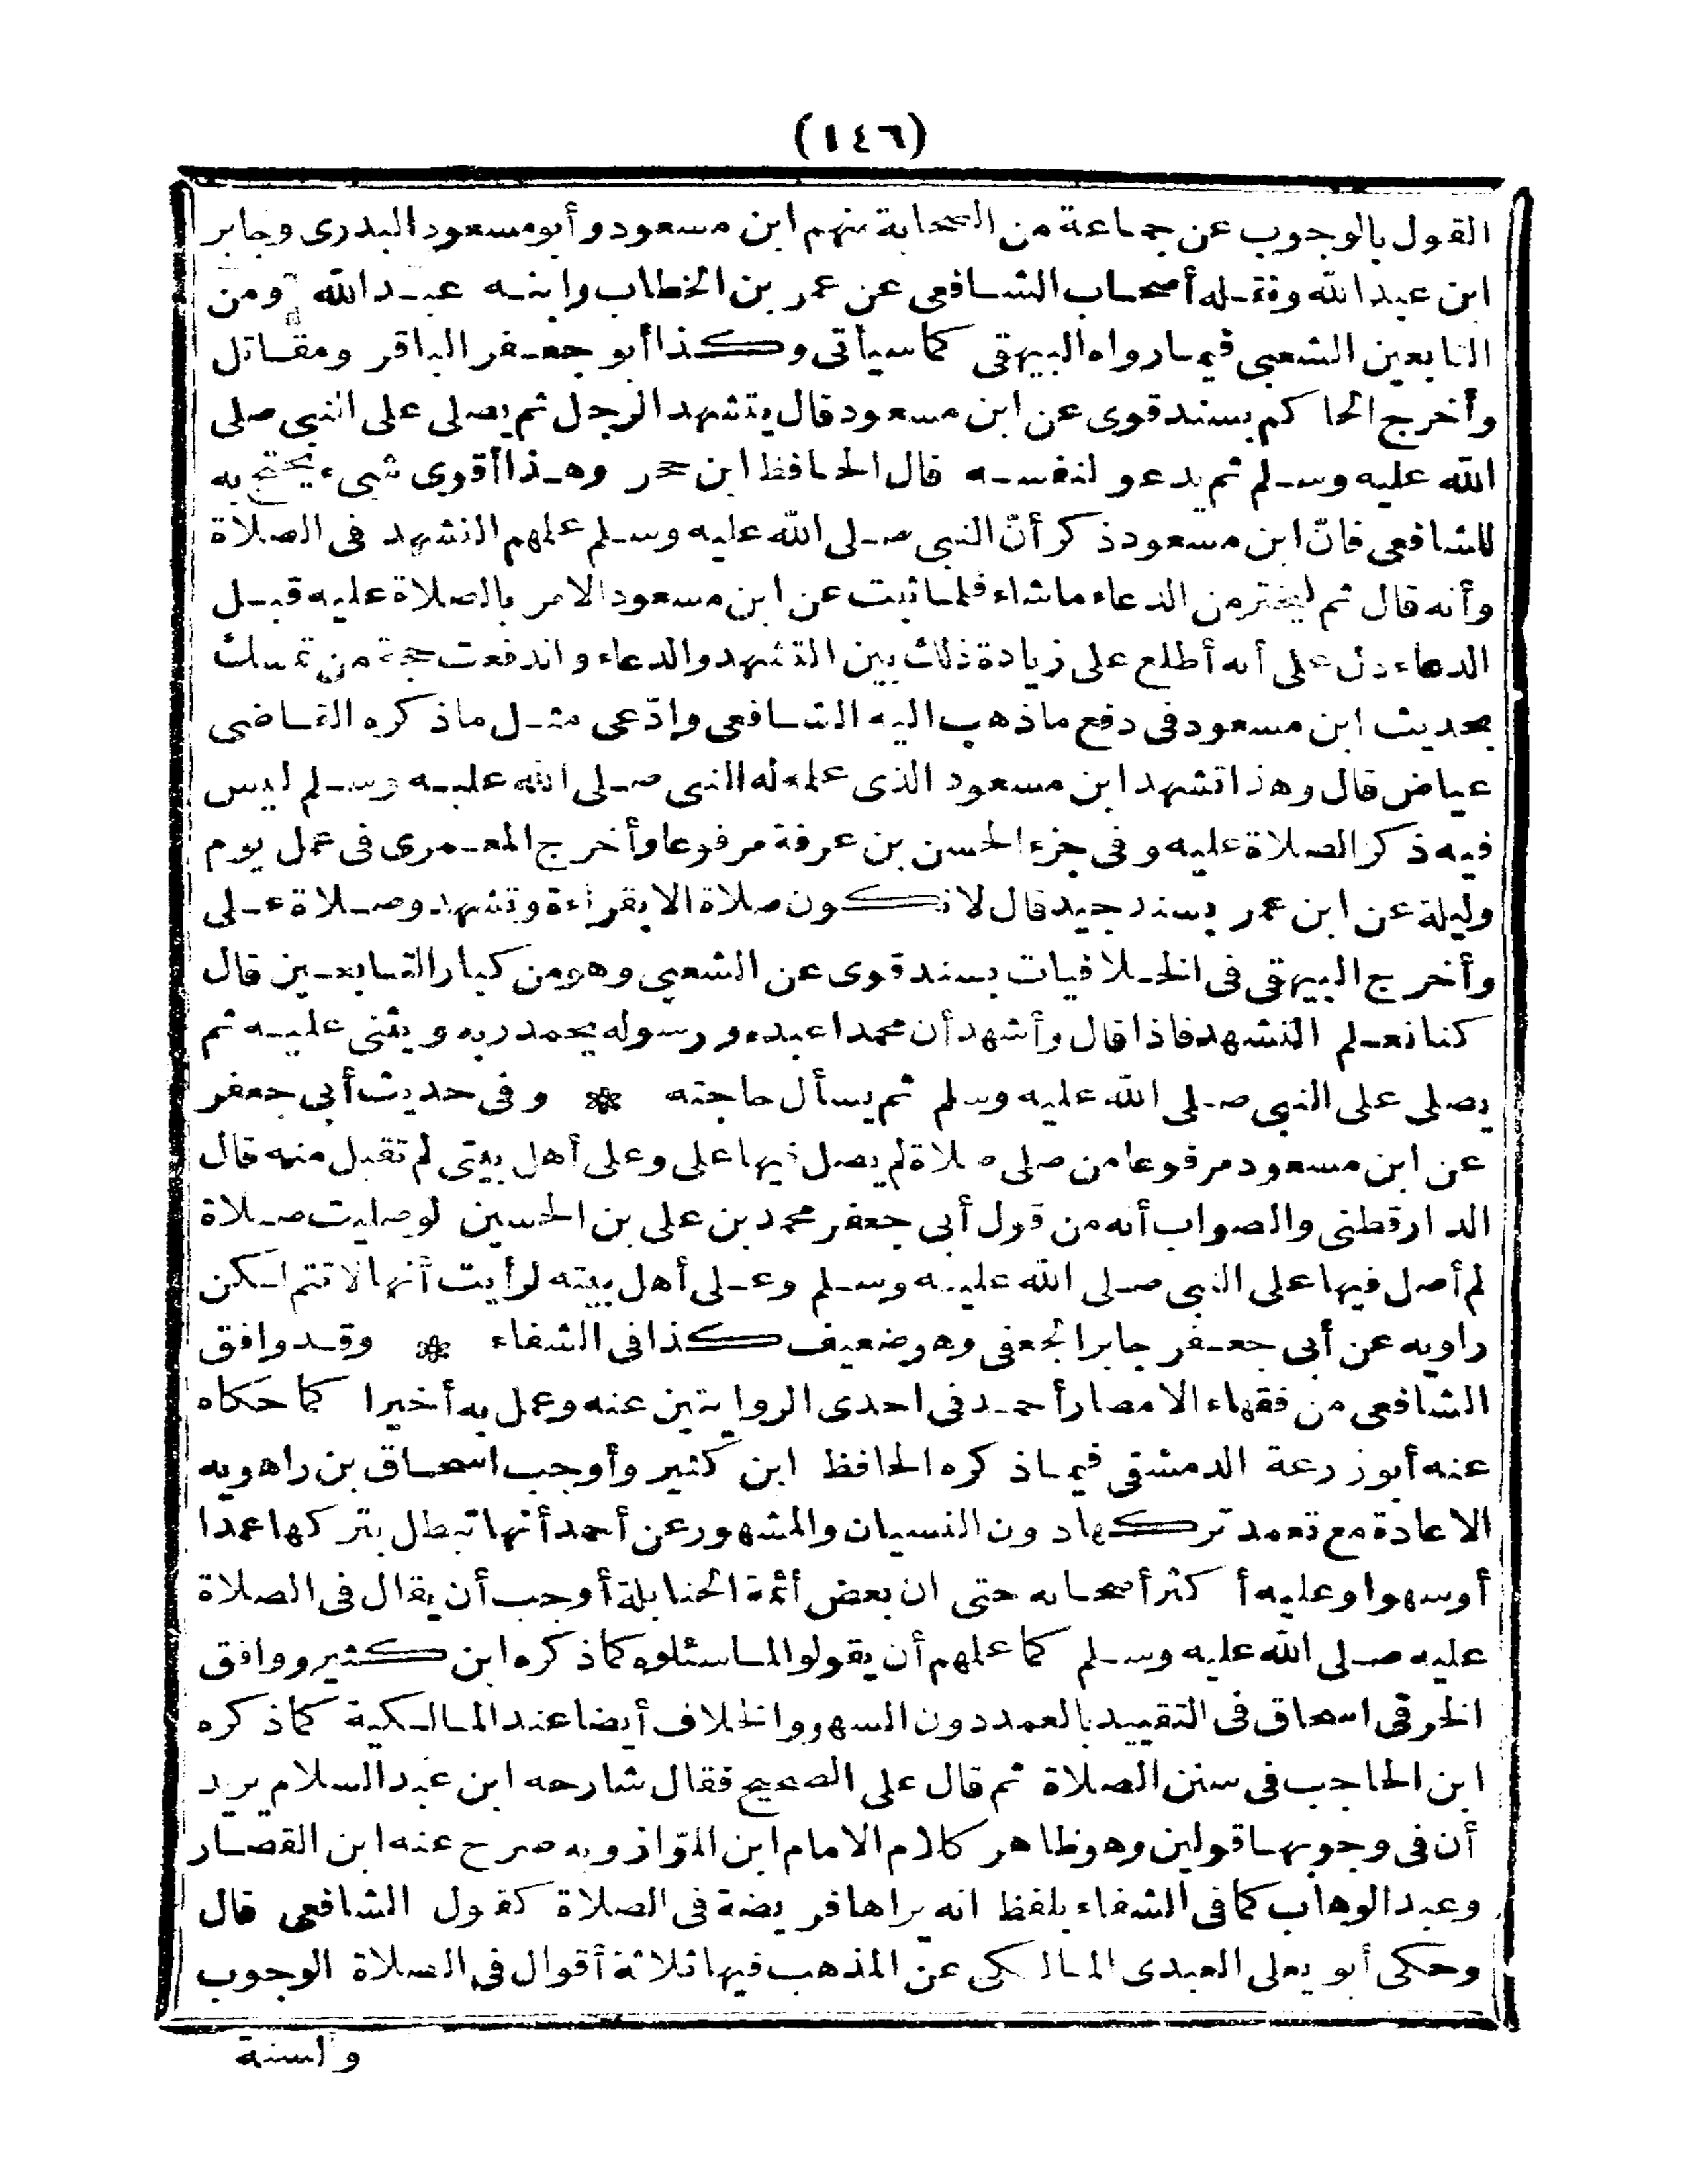 (١٤٦)
القول بالوجوب عن جماعة من الصحابة منهم ابن مسعود وأبو مسعود البدرى وجابر
ابن عبد الله ونقله أصحاب الشافعى عن عمر بن الخطاب وابنه عبد الله ومن
التابعين الشعبى فيما رواه البيهقى كما سيأتى وكذا أبو جعفر الباقر ومقاتل
وأخرج الحاكم بسند قوى عن ابن مسعود قال يتشهد الرجل ثم يصلى على النبى صلى
الله عليه وسلم ثم يدعو لنفسه قال الحافظ ابن حجر وهذا أقوى شىء يحتج به
للشافعى فانّ ابن مسعود ذكر أنّ النبى صلى الله عليه وسلم علمهم التشهد فى الصلاة
وأنه قال ثم ليختر من الدعاء ما شاء فلما ثبت عن ابن مسعود الامر بالصلاة عليه قبل
الدعاء دل على أنه أطلع على زيادة ذلك بين التشهد والدعاء واندفعت حجة من تمسك
بحديث ابن مسعود فى دفع ما ذهب اليه الشافعى وادّعى مثل ما ذكره القاضى
عياض قال وهذا تشهد ابن مسعود الذى علمه له النبى صلى الله عليه وسلم ليس
فيه ذكر الصلاة عليه وفى جزء الحسن بن عرفة مرفوعا وأخرج المعمرى فى عمل يوم
وليلة عن ابن عمر بسند جيد قال لا تكون صلاة الا بقراءة وتشهد وصلاة على
وأخرج البيهقى فى الخلافيات بسند قوى عن الشعبى وهو من كبار التابعين قال
كنا نعلم التشهد فاذا قال وأشهد أن محمدا عبده ورسوله يحمد ربه ويثنى عليه ثم
يصلى على النبى صلى الله عليه وسلم ثم يسأل حاجته * وفى حديث أبى جعفر
عن ابن مسعود مرفوعا من صلى صلاة لم يصل فيها على وعلى أهل بيتى لم تقبل منه قال
الدارقطنى والصواب أنه من قول أبى جعفر محمد بن على بن الحسين لو صليت صلاة
لم أصل فيها على النبى صلى الله عليه وسلم وعلى أهل بيته لرأيت أنها لا تتم لكن
راويه عن أبى جعفر جابر الجعفى وهو ضعيف كذا فى الشفاء * وقد وافق
الشافعى من فقهاء الامصار أحمد فى احدى الروايتين عنه وعمل به أخيرا كما حكاه
عنه أبو زرعة الدمشقى فيما ذكره الحافظ ابن كثير وأوجب اسحاق بن راهويه
الاعادة مع تعمد تركها دون النسيان والمشهور عن أحمد أنها تبطل بتركها عمدا
أو سهوا وعليه أكثر أصحابه حتى ان بعض أئمة الحنابلة أوجب أن يقال فى الصلاة
عليه صلى الله عليه وسلم كما علمهم أن يقولوا لما سئلوه كما ذكره ابن كثير ووافق
الخرقى اسحاق فى التقييد بالعمد دون السهو والخلاف أيضا عند المالكية كما ذكره
ابن الحاجب فى سنن الصلاة ثم قال على الصحيح فقال شارحه ابن عبد السلام يريد
أن فى وجوبها قولين وهو ظاهر كلام الامام ابن الموّاز وبه صرح عنه ابن القصار
وعبد الوهاب كما فى الشفاء بلفظ انه يراها فريضة فى الصلاة كقول الشافعى قال
وحكى أبو يعلى العبدى المالكى عن المذهب فيها ثلاثة أقوال فى الصلاة الوجوب
والسنة